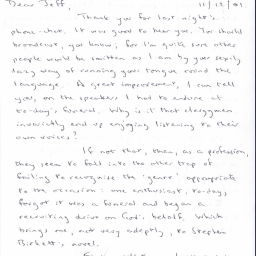 Dear Jeff, 11/12/91.
Thank you for last night's
phone-chat. It was good to hear you. You should
broadcast, you know; for I'm quite sure other
people would be smitten as I am by your sexily
lazy way of running your tongue round the
language. A great improvement, I can tell
you, on the speakers I had to endure at
to-day's funeral. Why is it that clergymen
invariably end up enjoying listening to their
own voices?
If not that, then, as a profession,
they seem to fall into the other trap of
failing to recognise the 'genre' appropriate
to the occasion: one enthusiast, to-day,
forgot it was a funeral and began a
recruiting drive on God's behalf. Which
brings me, not very adeptly, to Stephen
Birkett's novel.